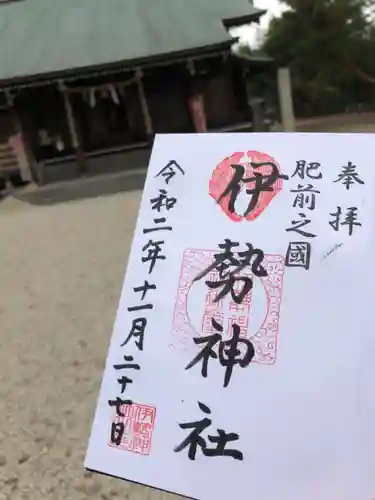 奉拝
肥前之國
伊勢神社
令和二年十一月二十七日